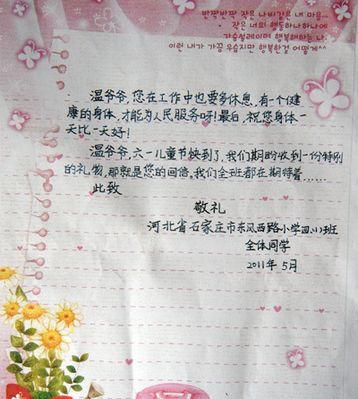 반짝반짝 작은 나비같은 내 마음...
작은 너의 행동하나하나에
가슴설레이며 행복해하는 나
이런 내가 가끔 우습지만 행복한걸 어떻게^^
温爷爷,您在工作中也要多休息,有一个健
康的身体,才能为人民服务呀!最后,祝您身体一
天比一天好!
温爷爷,六一儿童节快到了,我们期盼收到一份特别
的礼物,那就是您的回信,我们全班都在期待着……
此致
敬礼
河北省石家庄市东风西路小学四(1)班
全体同学
2011年5月